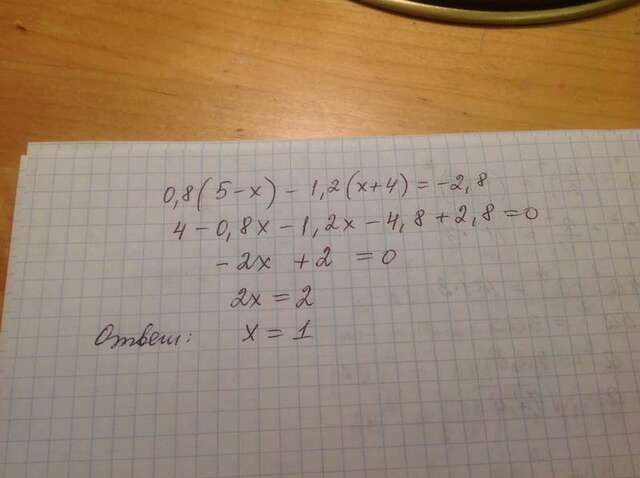 0,8(5-x) - 1,2(x+4) = -2,8
4 - 0,8x - 1,2x - 4,8 + 2,8 = 0
-2x + 2 = 0
2x = 2
Ответ: x = 1